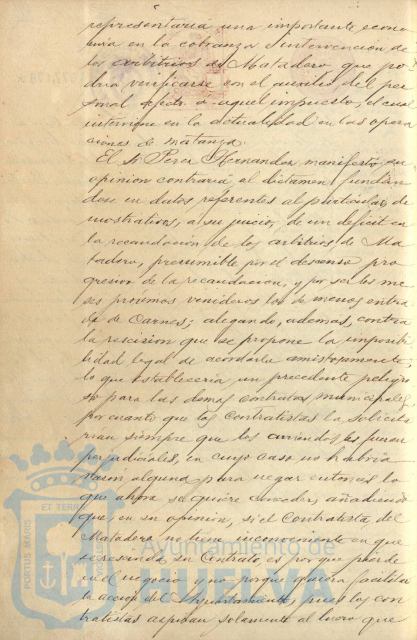 representaria una importante econo
mia en la cobranza e intervencion de
los arbitrios de Matadero que po
dria verificarse con el auxilio del per
sonal afecto a aquel impuesto, el cual
interviene en la actualidad en las opera
ciones de matanza.
El Sr. Perez Hernandez manifestó su
opinion contraria al dictamen fundan
dose en datos referentes al particular, de
mostrativos, a su juicio, de un deficit en
la recaudacion de los arbitrios de Ma
tadero, presumible por el descenso pro
gresivo de la recaudacion, y por ser los me
ses proximos venideros los de menos entra
da de Carnes; alegando, ademas, contra
la rescision que se propone la imposibi
lidad legal de acordarla amistosamente,
lo que estableceria un precedente peligro
so para las demas contratas municipales,
por cuanto que los Contratistas la solicita
rian siempre que los arriendos les fueran
perjudiciales, en cuyo caso no habria
razon alguna para negar entonces lo
que ahora se quiere conceder, añadiendo
que, en su opinion, si el Contratista del
Matadero no tiene inconveniente en que
se rescinda su Contrato, es por que pierde
en el negocio y no porque quiera
la accion del Ayuntamiento, pues los con
tratistas aspiran solamente al lucro que
PORTUS MARIS
ET TERRAE
Ayuntamiento de
HUELVA